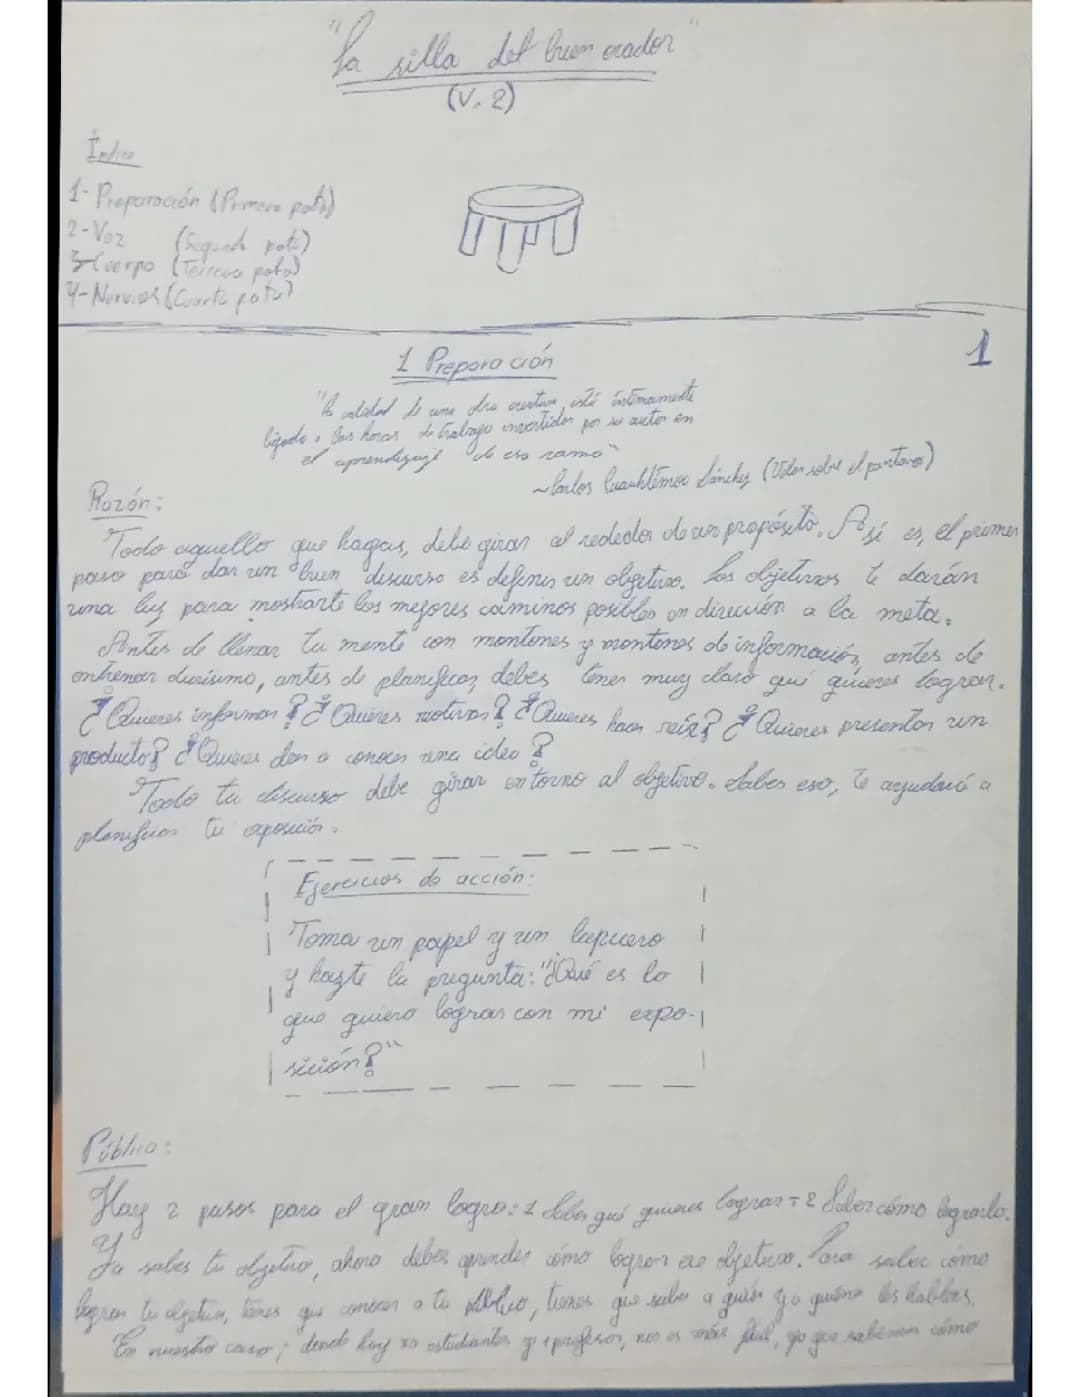 "La silla del buen orador"
(V. 2)
Índice
1- Preparación (Primera pata)
2- Voz (Segunda pata)
3- Cuerpo (Tercera pata)
4- Nervios (Cuarta pata)
1
1 Preparación
"La calidad de una obra creativa está íntimamente
ligada a las horas de trabajo invertidas por su autor en
el aprendizaje de ese ramo"
~Carlos Cuauhtémoc Sánchez (Volar sobre el pantano)
Razón:
Todo aquello que hagas, debe girar al rededor de un propósito. Así es, el primer
paso para dar un buen discurso es definir un objetivo. Los objetivos te darán
una luz para mostrarte los mejores caminos posibles en dirección a la meta.
Antes de llenar tu mente con montones y montones de información, antes de
entrenar durísimo, antes de planificar, debes tener muy claro qué quieres lograr.
¿Quieres informar? ¿Quieres motivar? ¿Quieres hacer reír? ¿Quieres presentar un
producto? ¿Quieres dar a conocer una idea?
Todo tu discurso debe girar entorno al objetivo. Saber eso, te ayudará a
planificar tu exposición.
Ejercicios de acción:
Toma un papel y un lapicero
y hazte la pregunta: "¿Qué es lo
que quiero lograr con mi expo-
sición?"
Público:
Hay 2 pasos para el gran logro: 1 Saber qué quieres lograr 2 Saber cómo lograrlo.
Ya sabes tu objetivo, ahora debes aprender cómo lograr ese objetivo. Para saber cómo
lograr tu objetivo, tienes que conocer a tu público, tienes que saber a quién y a quiénes les hablas.
En nuestro caso, donde hay estudiantes y 1 profesor, nos es más fácil, ya que sabemos cómo